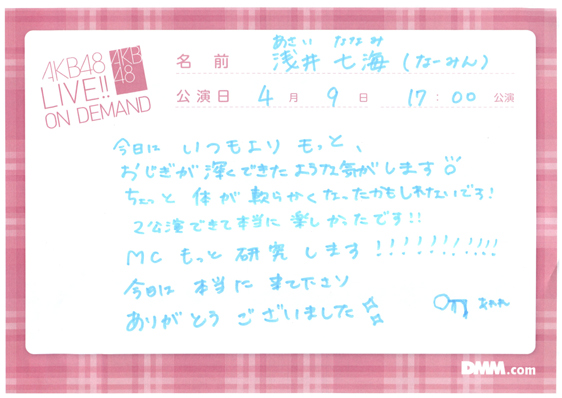 AKB48
LIVE!!
ON DEMAND
AKB
48
名前
あさい ななみ
浅井 七海 (なーみん)
公演日 4月 9日 17:00 公演
今日は いつもより もっと、
おじぎが 深くできたような気がします
ちょっと 体が 軟らかくなったかもしれないです!
2公演できて本当に 楽しかったです!!
MC もっと 研究 します !!!!!!!!!!!
今日は 本当に 来て下さり
ありがとう ございました☆☆
DMM.com